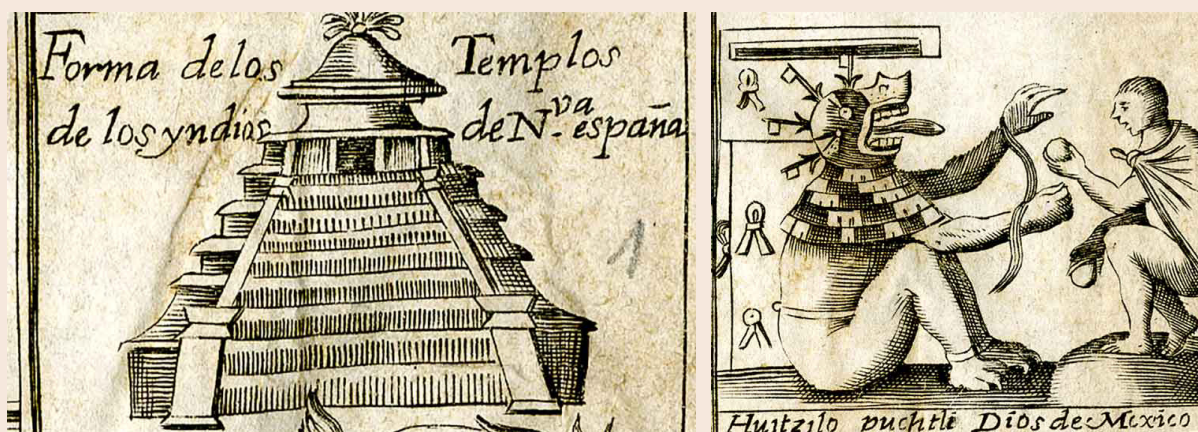 Forma de los Templos
de los yndios de N.va españa
1
Huitzilo puchtli Dios de Mexico